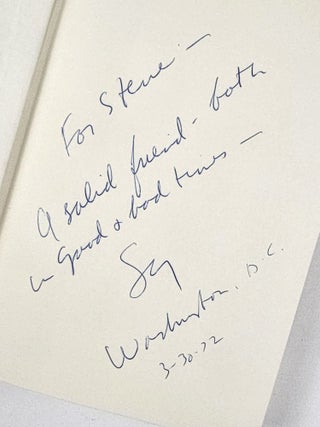 For Steve —
A solid friend - both
in good + bad times —
Sy
Washington, D.C.
3-30-72